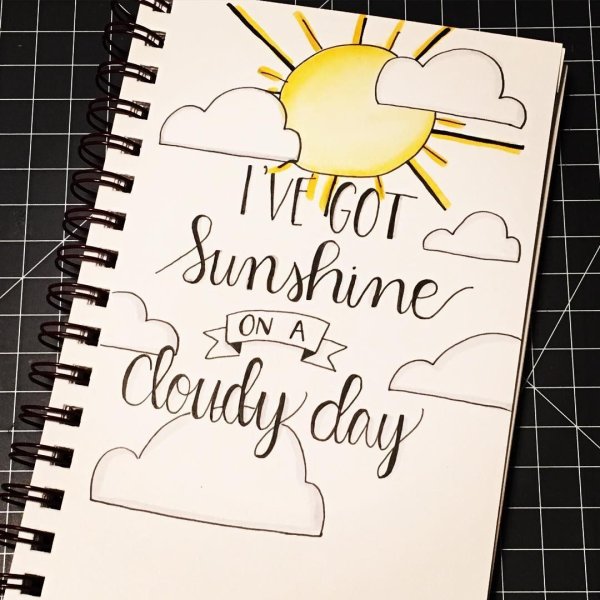 I'VE GOT
Sunshine
ON A
cloudy day